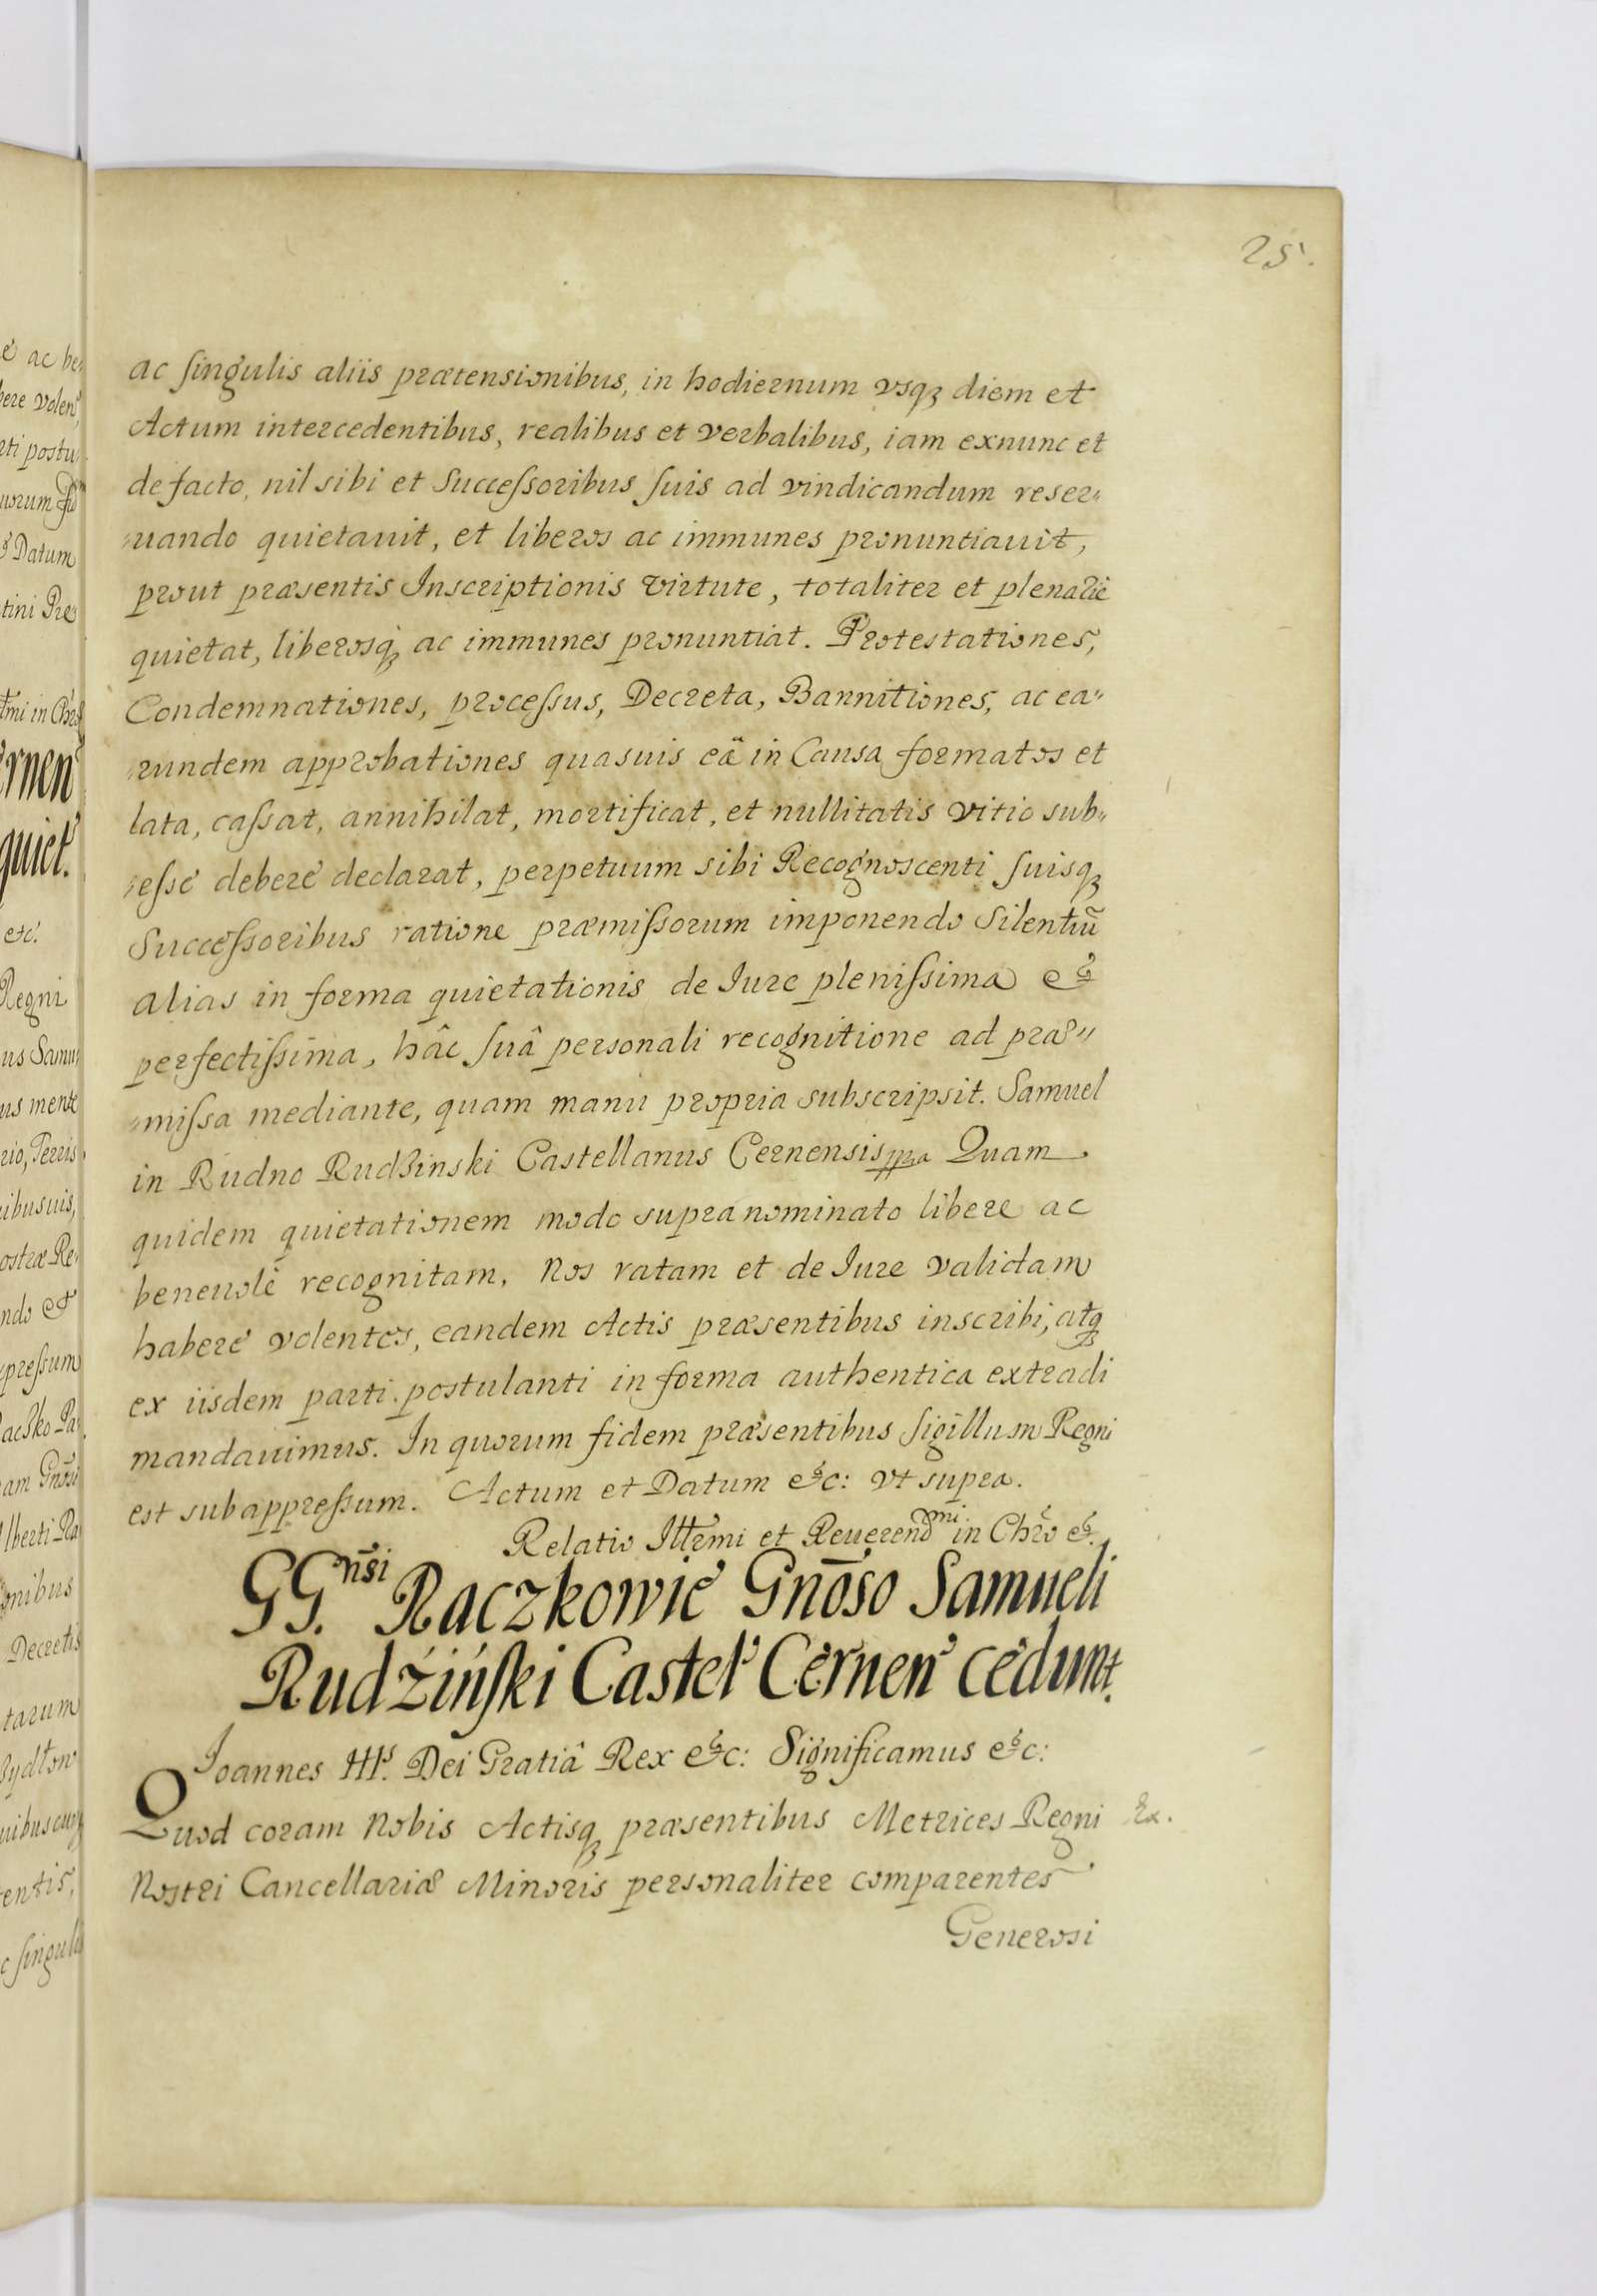 25.
ac singulis aliis prætensionibus, in hodiernum vsqꝫ diem et
Actum intercedentibus, realibus et verbalibus, iam exnunc et
de facto, nil sibi et Successoribus suis ad vindicandum reser„
„uando quietauit, et liberos ac immunes pronuntiauit,
prout præsentis Inscriptionis virtute, totaliter et plenariè
quietat, liberosqꝫ ac immunes pronuntiat. Protestationes,
Condemnationes, processus, Decreta, Bannitiones, ac ea„
„rundem approbationes quasuis eâ in Causa formatos et
lata, cassat, annihilat, mortificat, et nullitatis vitio sub„
„esse debere declarat, perpetuum sibi Recognoscenti suisqꝫ
Successoribus ratione præmissorum imponendo Silentiũ
alias in forma quietationis de Iure plenissima et
perfectissima, hâc suâ personali recognitione ad præ„
„missa mediante, quam manu propria subscripsit. Samuel
in Rudno Rudzinski Castellanus Cernensis mpa Quam
quidem quietationem modo supranominato libere ac
beneuolè recognitam, Nos ratam et de Iure validam
habere volentes, eandem Actis præsentibus inscribi, atqꝫ
ex iisdem parti postulanti in forma authentica extradi
mandauimus. In quorum fidem præsentibus sigillum Regni
est subappressum. Actum et Datum etc: vt supra.
Relatio Illrmi et Reuerendmi in Chro et.
GG.nsi Raczkowie Gnōso Samueli
Rudźiński Castel' Cernen' cedunt.
Joannes III.s Dei Gratiâ Rex etc: Significamus etc:
Quod coram Nobis Actisqꝫ præsentibus Metrices Regni Ex.
Nostri Cancellariæ Minoris personaliter comparentes
Generosi